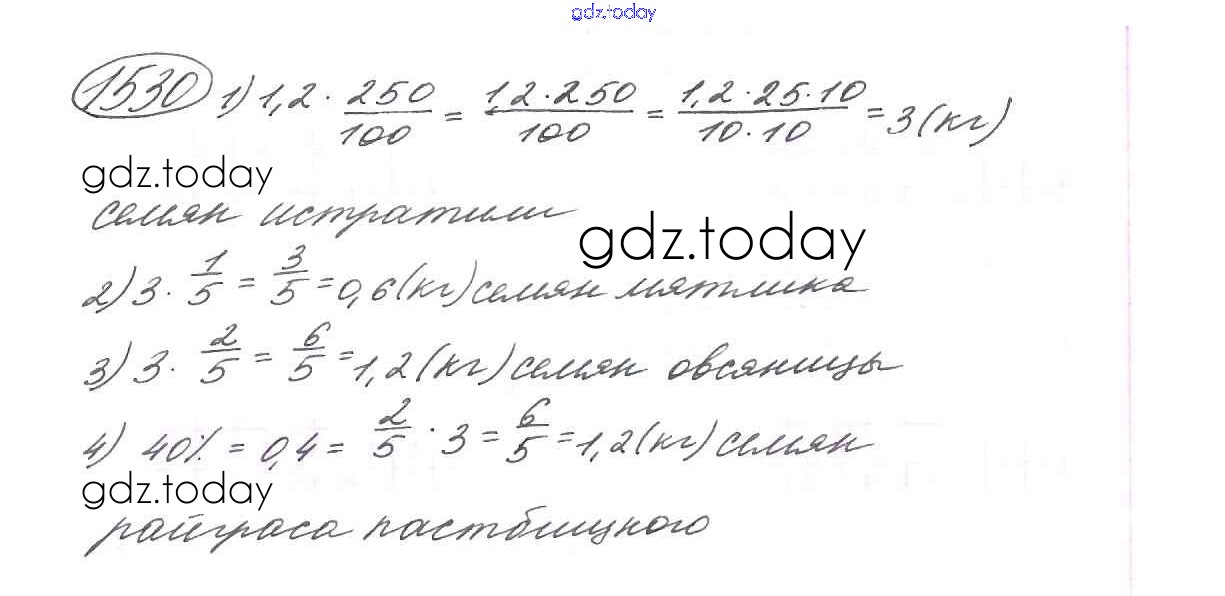 gdz.today
1530 1) 1,2 · 250/100 = 1,2·250/100 = 1,2·25·10/10·10 = 3 (кг)
gdz.today
семян истратили
gdz.today
2) 3 · 1/5 = 3/5 = 0,6 (кг) семян мятлика
3) 3 · 2/5 = 6/5 = 1,2 (кг) семян овсяницы
4) 40% = 0,4 = 2/5 · 3 = 6/5 = 1,2 (кг) семян
gdz.today
райграса пастбищного